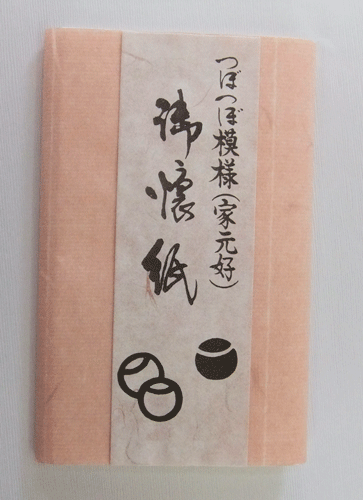 つぼつぼ模様(家元好)
御懐紙